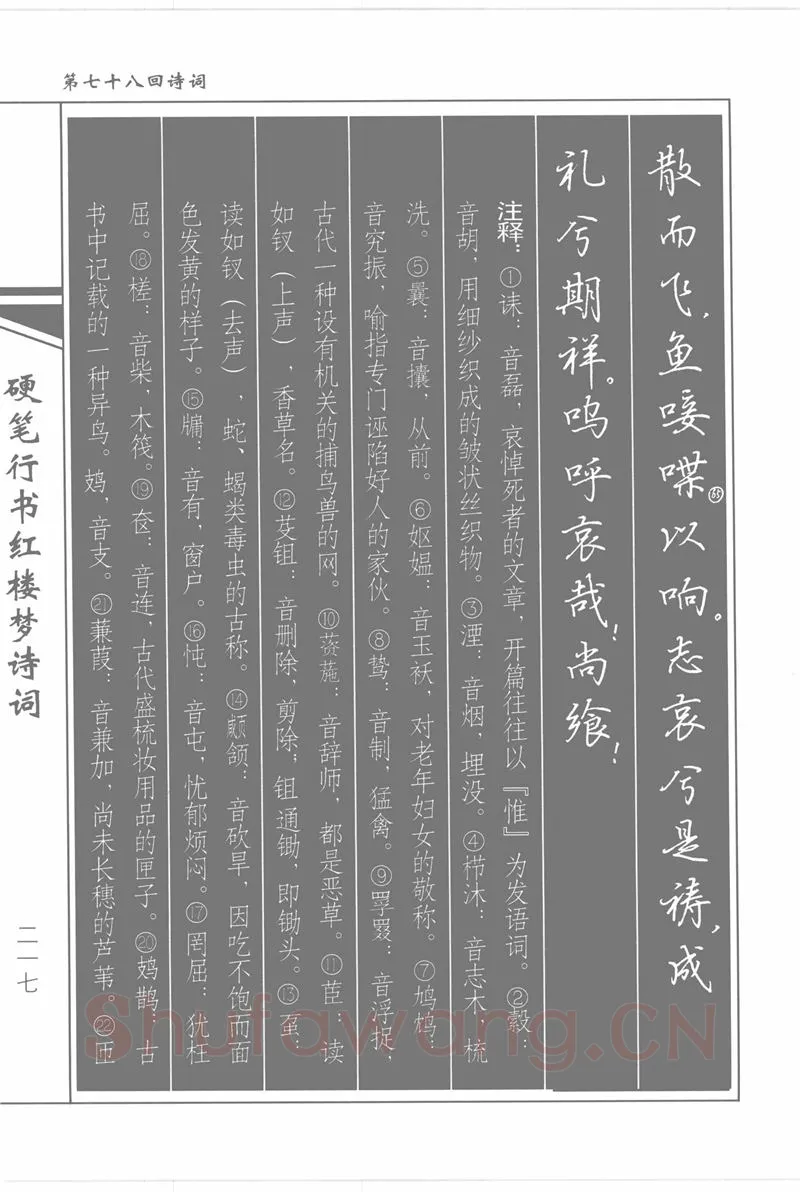 第七十八回诗词
散而飞，鱼唼喋㉟以响。志哀兮是祷，成
礼兮期祥。呜呼哀哉！尚飨！
注释：①诔：音磊，哀悼死者的文章，开篇往往以『惟』为发语词。②縠：
音胡，用细纱织成的皱状丝织物。③湮：音烟，埋没。④栉沐：音志木，梳
洗。⑤曩：音攮，从前。⑥妪媪：音玉袄，对老年妇女的敬称。⑦鸠鸩，
音究振，喻指专门诬陷好人的家伙。⑧鸷：音制，猛禽。⑨罦罬：音浮捉，
古代一种设有机关的捕鸟兽的网。⑩薋葹：音辞师，都是恶草。⑪茝 读
如钗（上声），香草名。⑫芟鉏：音删除，剪除；鉏通锄，即锄头。⑬虿：
读如钗（去声），蛇、蝎类毒虫的古称。⑭顑颔：音砍旱，因吃不饱而面
色发黄的样子。⑮牖：音有，窗户。⑯忳：音屯，忧郁烦闷。⑰罔屈：犹枉
屈。⑱槎：音柴，木筏。⑲奁：音连，古代盛梳妆用品的匣子。⑳鳷鹊 古
书中记载的一种异鸟。鳷，音支。㉑蒹葭：音兼加，尚未长穗的芦苇。㉒匝
硬笔行书红楼梦诗词
二一七
Shufawang.CN